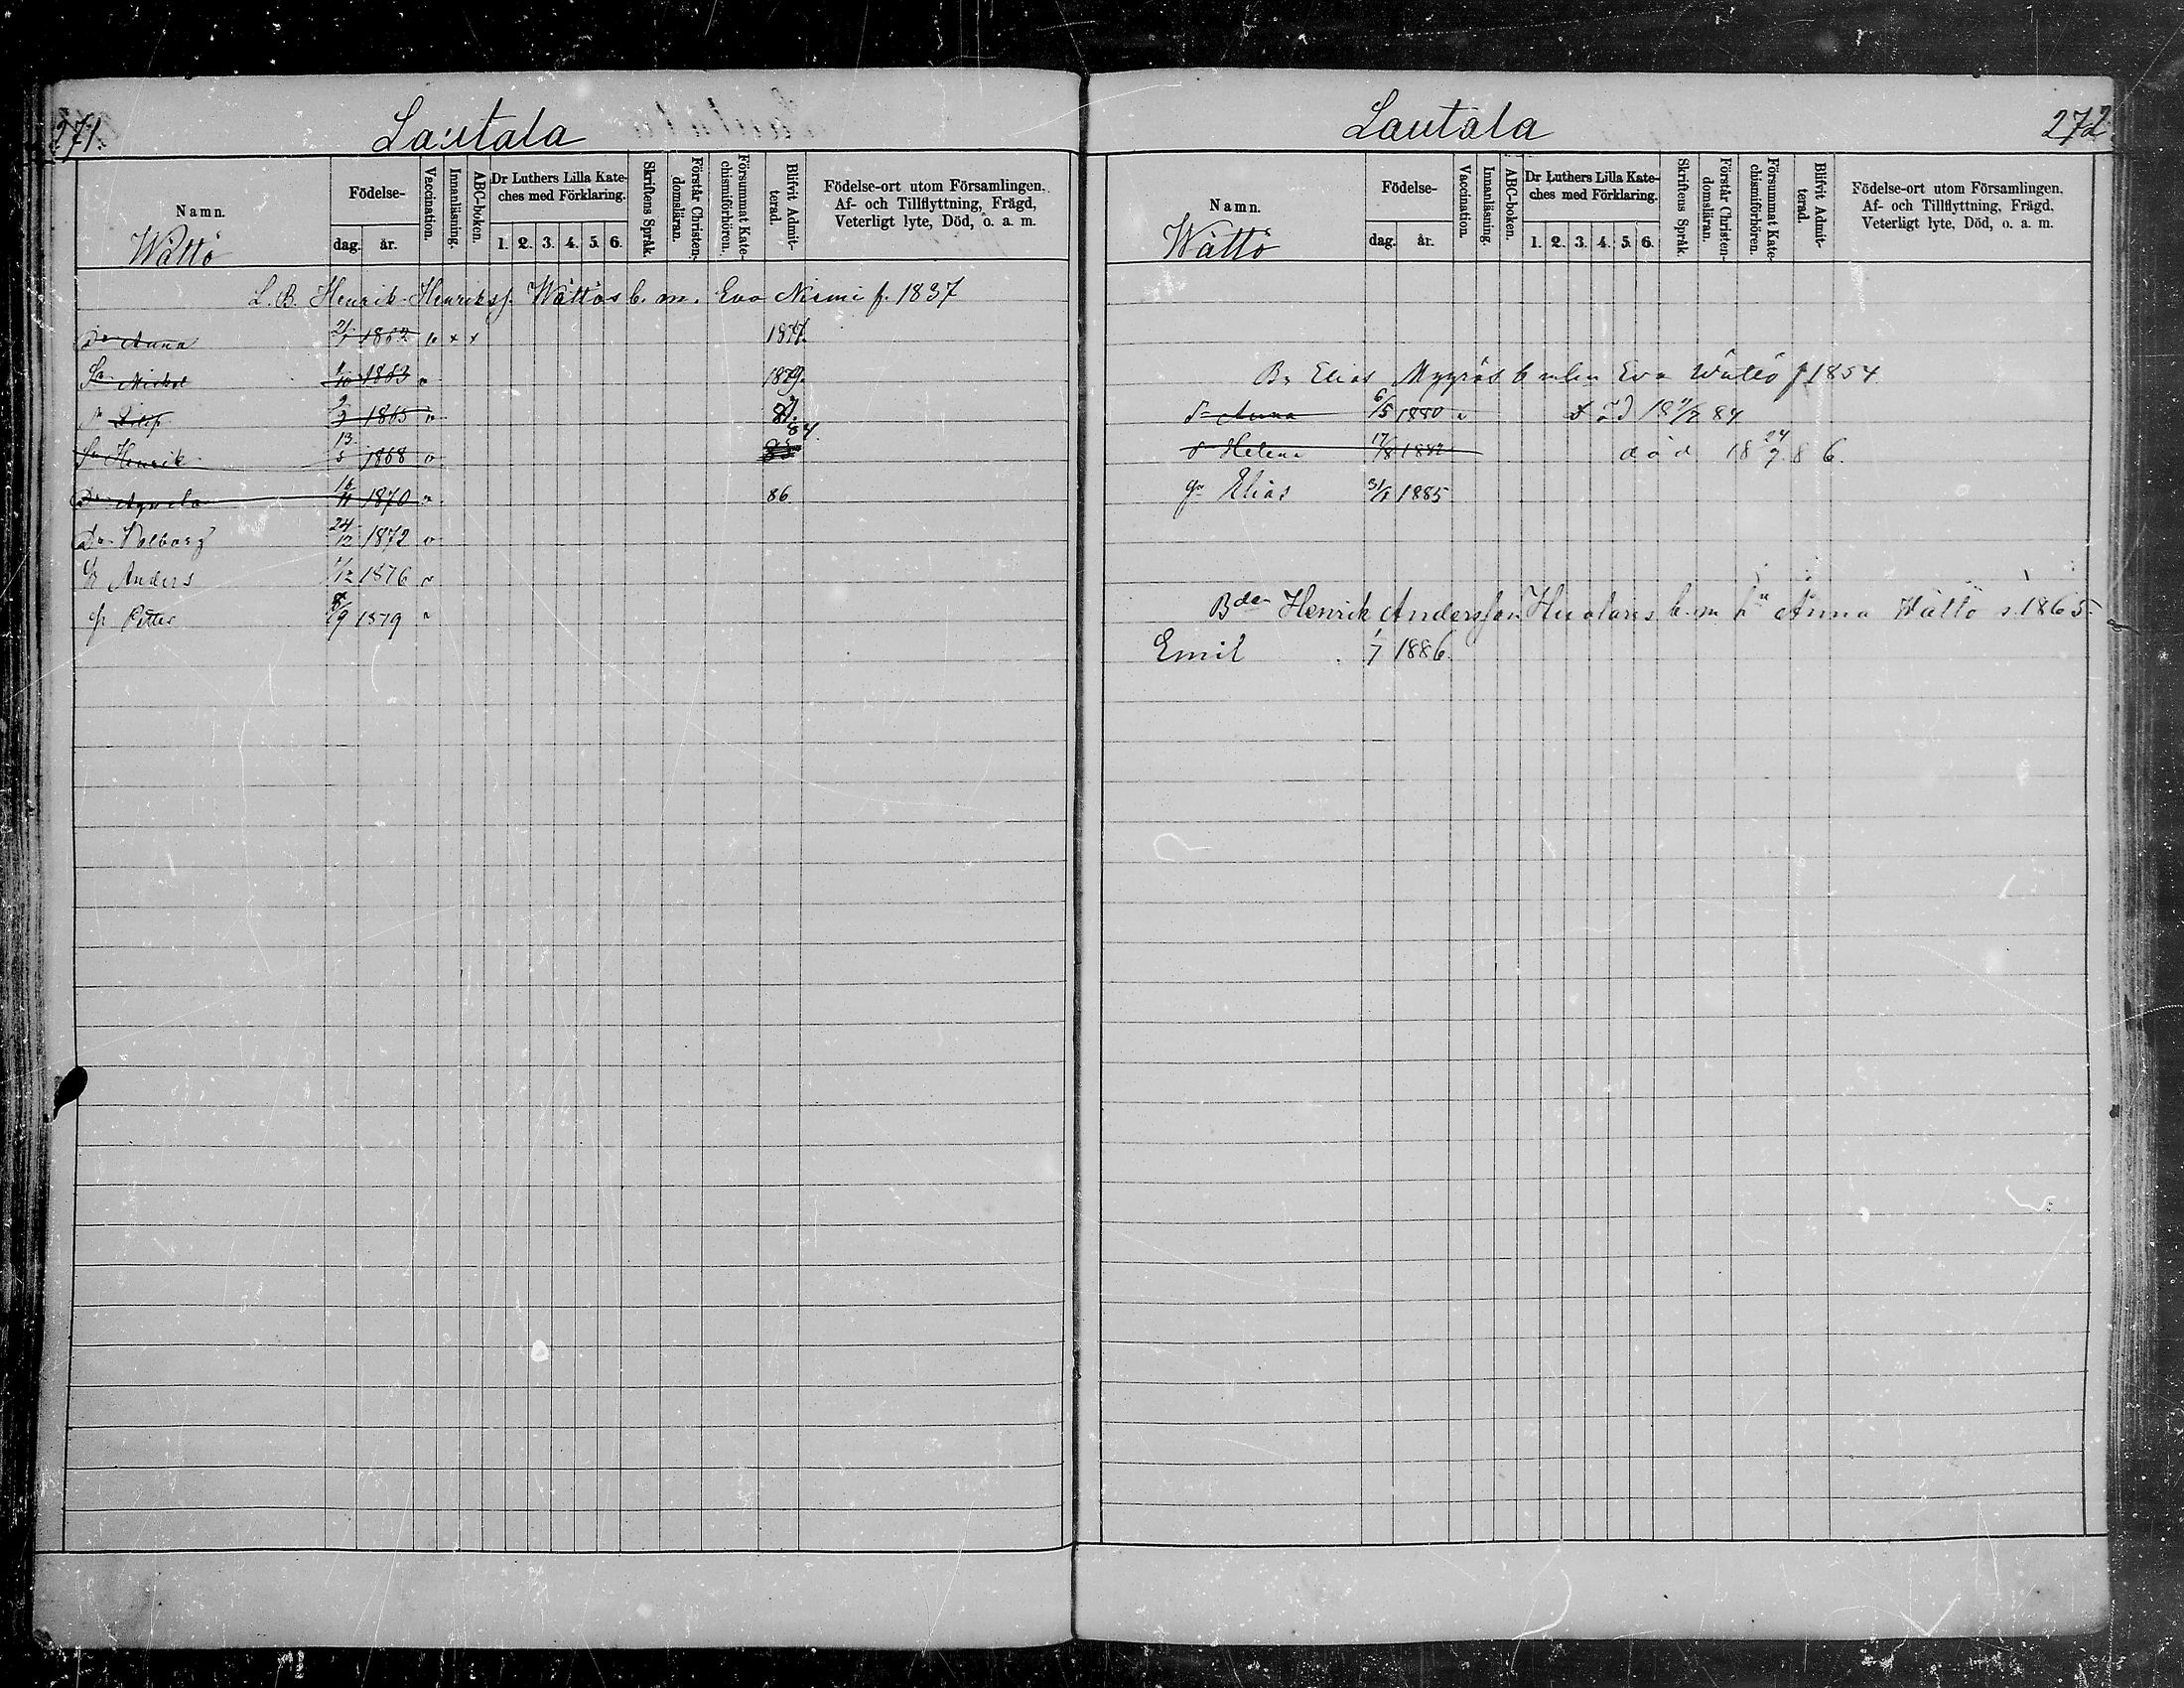 271.
Lautala
Namn.
Wättö
Födelse-
dag.
år.
Vaccination.
Innanläsning.
ABC-boken.
Dr Luthers Lilla Kate-
ches med Förklaring.
1. 2. 3. 4. 5. 6.
Skriftens Språk.
Förstår Christen-
domsläran.
Försummat Kate-
chismiförhören.
Blifvit Admit-
terad.
Födelse-ort utom Församlingen,
Af- och Tillflyttning, Frägd,
Veterligt lyte, Död, o. a. m.
L. B. Henrik Henrikss. Wättös b. m. Eva Niemi f. 1837
Dr Anna 2/1 1862 v + + 1877.
Sn Mickel 1/10 1863 v 1879.
1865 v
Sn Henrik 13/5 1868 v 84.
Dr 1870 v 86.
Dr Valborg 24/12 1872 v
Anders 1/12 1876 v
Petter 8/9 1879 v
272
Lautala
Namn.
Wättö
Födelse-
dag.
år.
Vaccination.
Innanläsning.
ABC-boken.
Dr Luthers Lilla Kate-
ches med Förklaring.
1. 2. 3. 4. 5. 6.
Skriftens Språk.
Förstår Christen-
domsläran.
Försummat Kate-
chismiförhören.
Blifvit Admit-
terad.
Födelse-ort utom Församlingen,
Af- och Tillflyttning, Frägd,
Veterligt lyte, Död, o. a. m.
Bn Elias Myyräs b Eva Wättö f 1854
Anna 6/5 1880 v död 84
Helena 17/8 1882 död 18 24/7 86.
Elias 31/1 1885
Bden Henrik Andersson b. m. hu Anna Wättö s. 1865
Emil 1/7 1886.